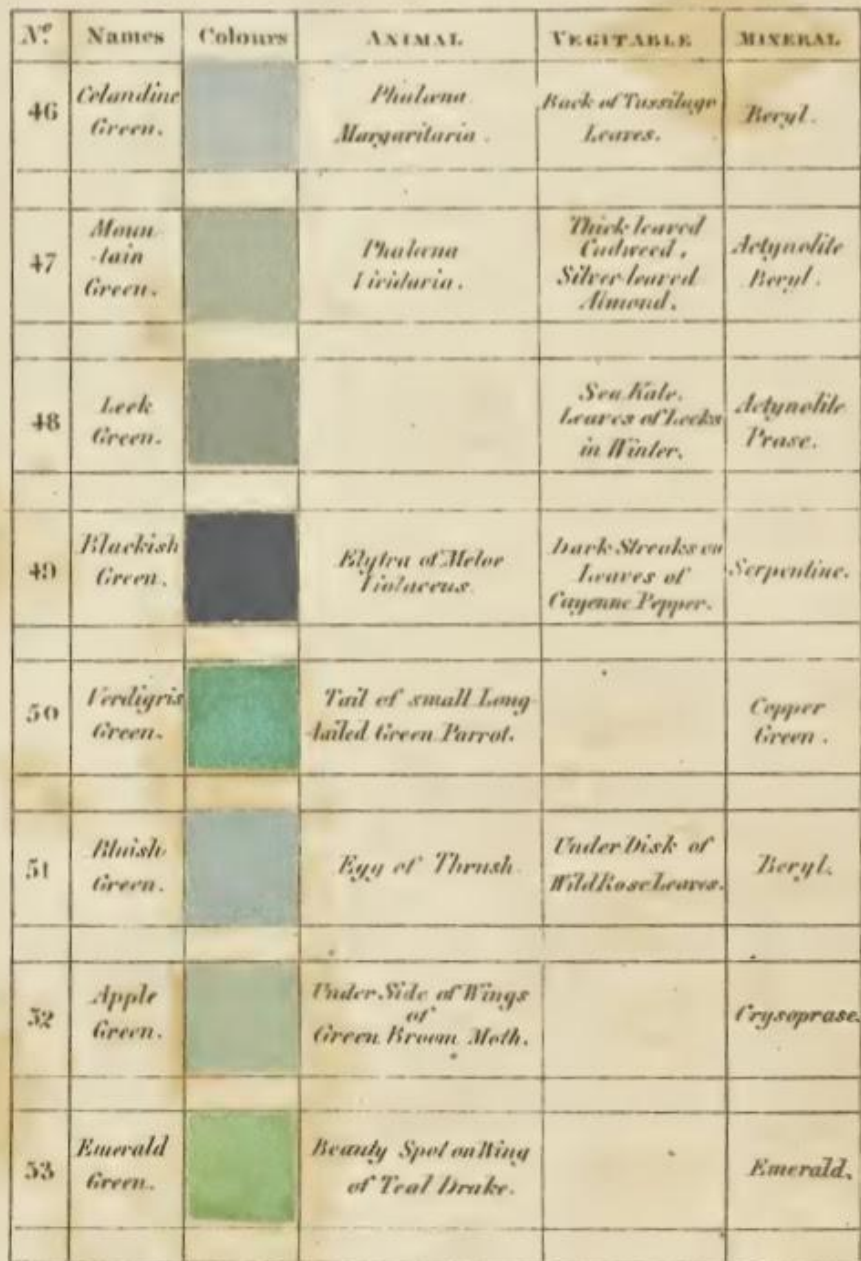 No. Names Colours ANIMAL VEGITABLE MINERAL
46
Celandine
Green.
Phalæna
Margaritaria.
Back of Tussilage
Leaves.
Beryl.
47
Moun
-tain
Green.
Phalæna
Viridaria.
Thick leaved
Cudweed,
Silver leaved
Almond.
Actynolite
Beryl.
48
Leek
Green.
Sea Kale.
Leaves of Leeks
in Winter.
Actynolite
Prase.
49
Blackish
Green.
Elytra of Meloe
Violaceus.
Dark Streaks on
Leaves of
Cayenne Pepper.
Serpentine.
50
Verdigris
Green.
Tail of small Long
-tailed Green Parrot.
Copper
Green.
51
Bluish
Green.
Egg of Thrush.
Under Disk of
Wild Rose Leaves.
Beryl.
52
Apple
Green.
Under Side of Wings
of
Green Broom Moth.
Crysoprase.
53
Emerald
Green.
Beauty Spot on Wing
of Teal Drake.
Emerald.